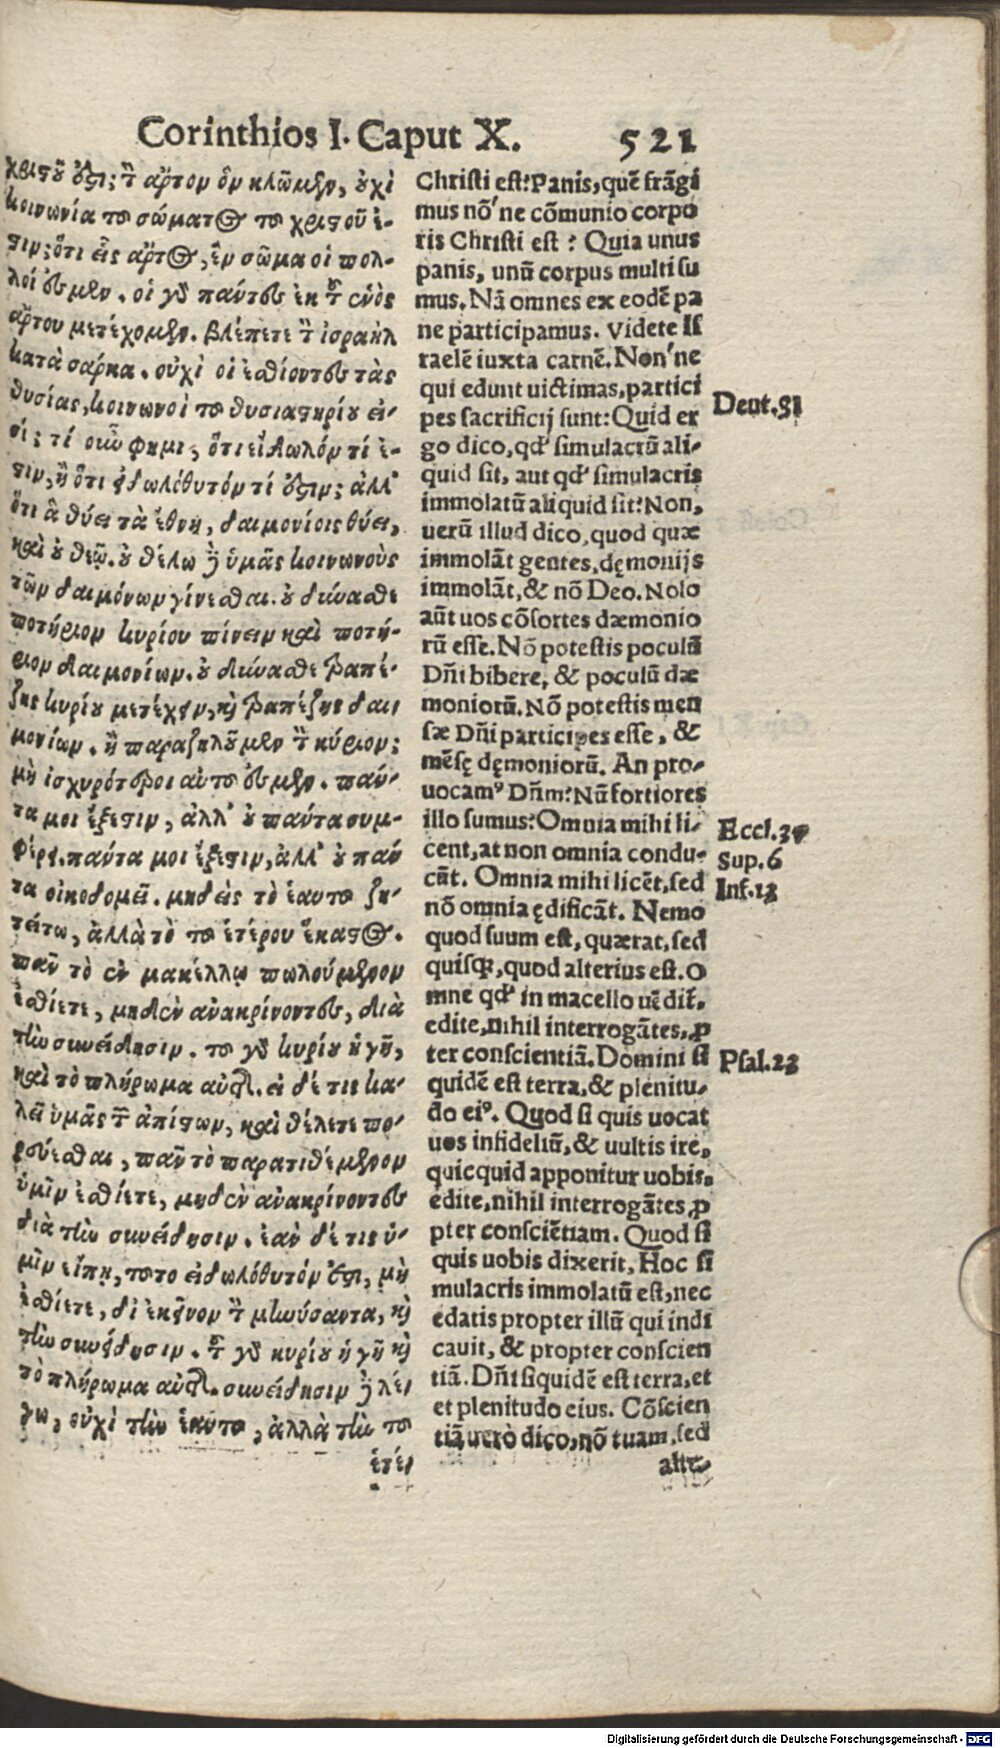 Corinthios I. Caput X. 521
χριστοῦ ἐστι; τὸν ἄρτον ὃν κλῶμεν, οὐχὶ
κοινωνία τοῦ σώματος τοῦ χριστοῦ ἐ-
στιν; ὅτι εἷς ἄρτος, ἓν σῶμα οἱ πολ-
λοί ἐσμεν. οἱ γὰρ πάντες ἐκ τοῦ ἑνὸς
ἄρτου μετέχομεν. βλέπετε τὸν ἰσραὴλ
κατὰ σάρκα. οὐχὶ οἱ ἐσθίοντες τὰς
θυσίας, κοινωνοὶ τοῦ θυσιαστηρίου εἰ-
σί; τί οὖν φημι, ὅτι εἴδωλόν τί ἐ-
στιν, ἢ ὅτι εἰδωλόθυτόν τί ἐστιν; ἀλλ᾽
ὅτι ἃ θύει τὰ ἔθνη, δαιμονίοις θύει,
καὶ οὐ θεῷ. οὐ θέλω δὲ ὑμᾶς κοινωνοὺς
τῶν δαιμόνων γίνεσθαι. οὐ δύνασθε
ποτήριον κυρίου πίνειν καὶ ποτή-
ριον δαιμονίων. οὐ δύνασθε τραπέ-
ζης κυρίου μετέχειν, καὶ τραπέζης δαι-
μονίων. ἢ παραζηλοῦμεν τὸν κύριον;
μὴ ἰσχυρότεροι αὐτοῦ ἐσμεν. πάν-
τα μοι ἔξεστιν, ἀλλ᾽ οὐ πάντα συμ-
φέρει. πάντα μοι ἔξεστιν, ἀλλ᾽ οὐ πάν
τα οἰκοδομεῖ. μηδεὶς τὸ ἑαυτοῦ ζη-
τείτω, ἀλλὰ τὸ τοῦ ἑτέρου ἕκαστος.
πᾶν τὸ ἐν μακέλλῳ πωλούμενον
ἐσθίετε, μηδὲν ἀνακρίνοντες, διὰ
τὴν συνείδησιν. τοῦ γὰρ κυρίου ἡ γῆ,
καὶ τὸ πλήρωμα αὐτῆς. εἰ δέ τις κα-
λεῖ ὑμᾶς τῶν ἀπίστων, καὶ θέλετε πο-
ρεύεσθαι, πᾶν τὸ παρατιθέμενον
ὑμῖν ἐσθίετε, μηδὲν ἀνακρίνοντες
διὰ τὴν συνείδησιν. ἐὰν δέ τις ὑ-
μῖν εἴπῃ, τοῦτο εἰδωλόθυτόν ἐστι, μὴ
ἐσθίετε, δι᾽ ἐκεῖνον τὸν μηνύσαντα, καὶ
τὴν συνείδησιν. τοῦ γὰρ κυρίου ἡ γῆ καὶ
τὸ πλήρωμα αὐτῆς. συνείδησιν δὲ λέ-
γω, οὐχὶ τὴν ἑαυτοῦ, ἀλλὰ τὴν τοῦ
ἑτέ-
Christi est? Panis, quẽ frãgi
mus nõ'ne cõmunio corpo
ris Christi est? Quia unus
panis, unũ corpus multi su
mus. Nã omnes ex eodẽ pa
ne participamus. Videte Is
raelẽ iuxta carnẽ. Non'ne
qui edunt uictimas, partici
pes sacrificij sunt? Quid er
go dico, qd' simulacrũ ali-
quid sit, aut qd' simulacris
immolatũ aliquid sit? Non,
uerũ illud dico, quod quæ
immolãt gentes, dęmonijs
immolãt, & nõ Deo. Nolo
aũt uos cõsortes dæmonio
rũ esse. Nõ potestis poculũ
Dñi bibere, & poculũ dæ
moniorũ. Nõ potestis men
sæ Dñi participes esse, &
mẽsę dęmoniorũ. An pro-
uocamꝰ Dñm? Nũ fortiores
illo sumus? Omnia mihi li-
cent, at non omnia condu-
cũt. Omnia mihi licẽt, sed
nõ omnia ędificãt. Nemo
quod suum est, quærat, sed
quisq;, quod alterius est. O
mne qd' in macello uẽdit̃,
edite, nihil interrogãtes, ꝓ
ter conscientiã. Domini si
quidẽ est terra, & plenitu-
do eiꝰ. Quod si quis uocat
uos infideliũ, & uultis ire,
quicquid apponitur uobis,
edite, nihil interrogãtes, ꝓ
pter consciẽtiam. Quod si
quis uobis dixerit, Hoc si
mulacris immolatũ est, nec
edatis propter illũ qui indi
cauit, & propter conscien
tiã. Dñi siquidẽ est terra, et
et plenitudo eius. Cõscien
tiã uerò dico, nõ tuam, sed
alte-
Deut. 31
Eccl. 39
Sup. 6
Inf. 13
Psal. 23
Digitalisierung gefördert durch die Deutsche Forschungsgemeinschaft - DFG